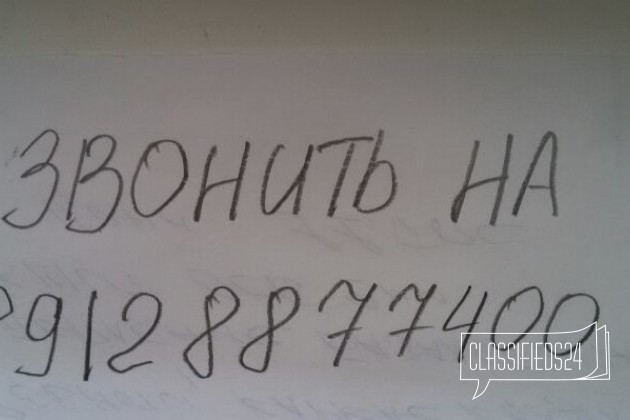 ЗВОНИТЬ НА
9128877400
CLASSIFIEDS24